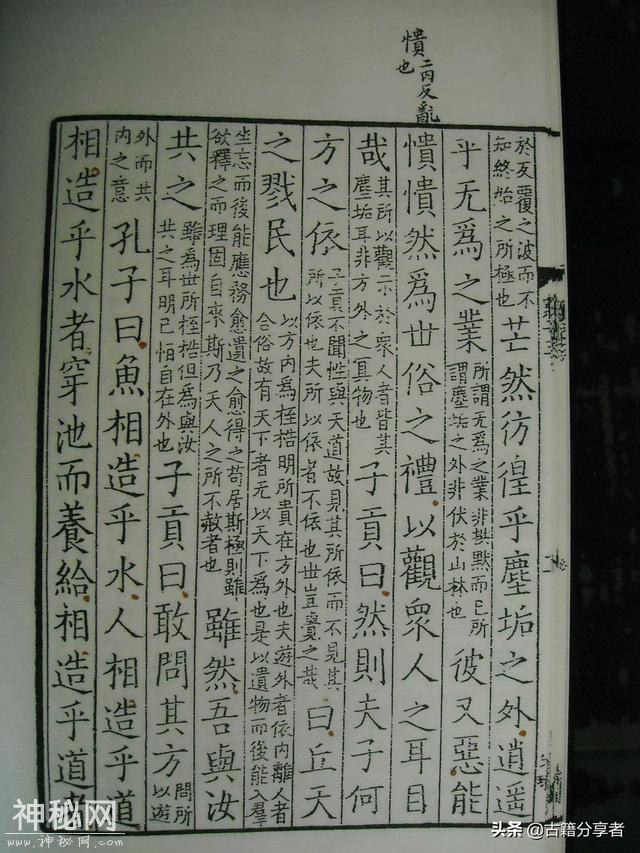 憒二內反亂
也
於反覆之波而不
知終始之所極也芒然彷徨乎塵垢之外逍遥
乎无爲之業所謂无爲之業非拱默而已所
謂塵垢之外非伏於山林也彼又惡能
憒憒然爲世俗之禮以觀衆人之耳目
哉其所以觀示於衆人者皆其
塵垢耳非方外之冥物也子貢曰然則夫子何
方之依子貢不聞性與天道故見其所依而不見其
所以依也夫所以依者不依也世豈覺之哉曰丘天
之戮民也以方內爲桎梏明所貴在方外也夫遊外者依內離人者
合俗故有天下者无以天下爲也是以遺物而後能入羣
坐忘而後能應務愈遺之愈得之苟居斯極則雖
欲釋之而理固自來斯乃天人之所不赦者也雖然吾與汝
共之雖爲世所桎梏但爲與汝
共之耳明己怕自在外也子貢曰敢問其方問所
以遊
外而共
內之意孔子曰魚相造乎水人相造乎道
相造乎水者穿池而養給相造乎道
神秘网
www.神秘网.com
头条 @古籍分享者